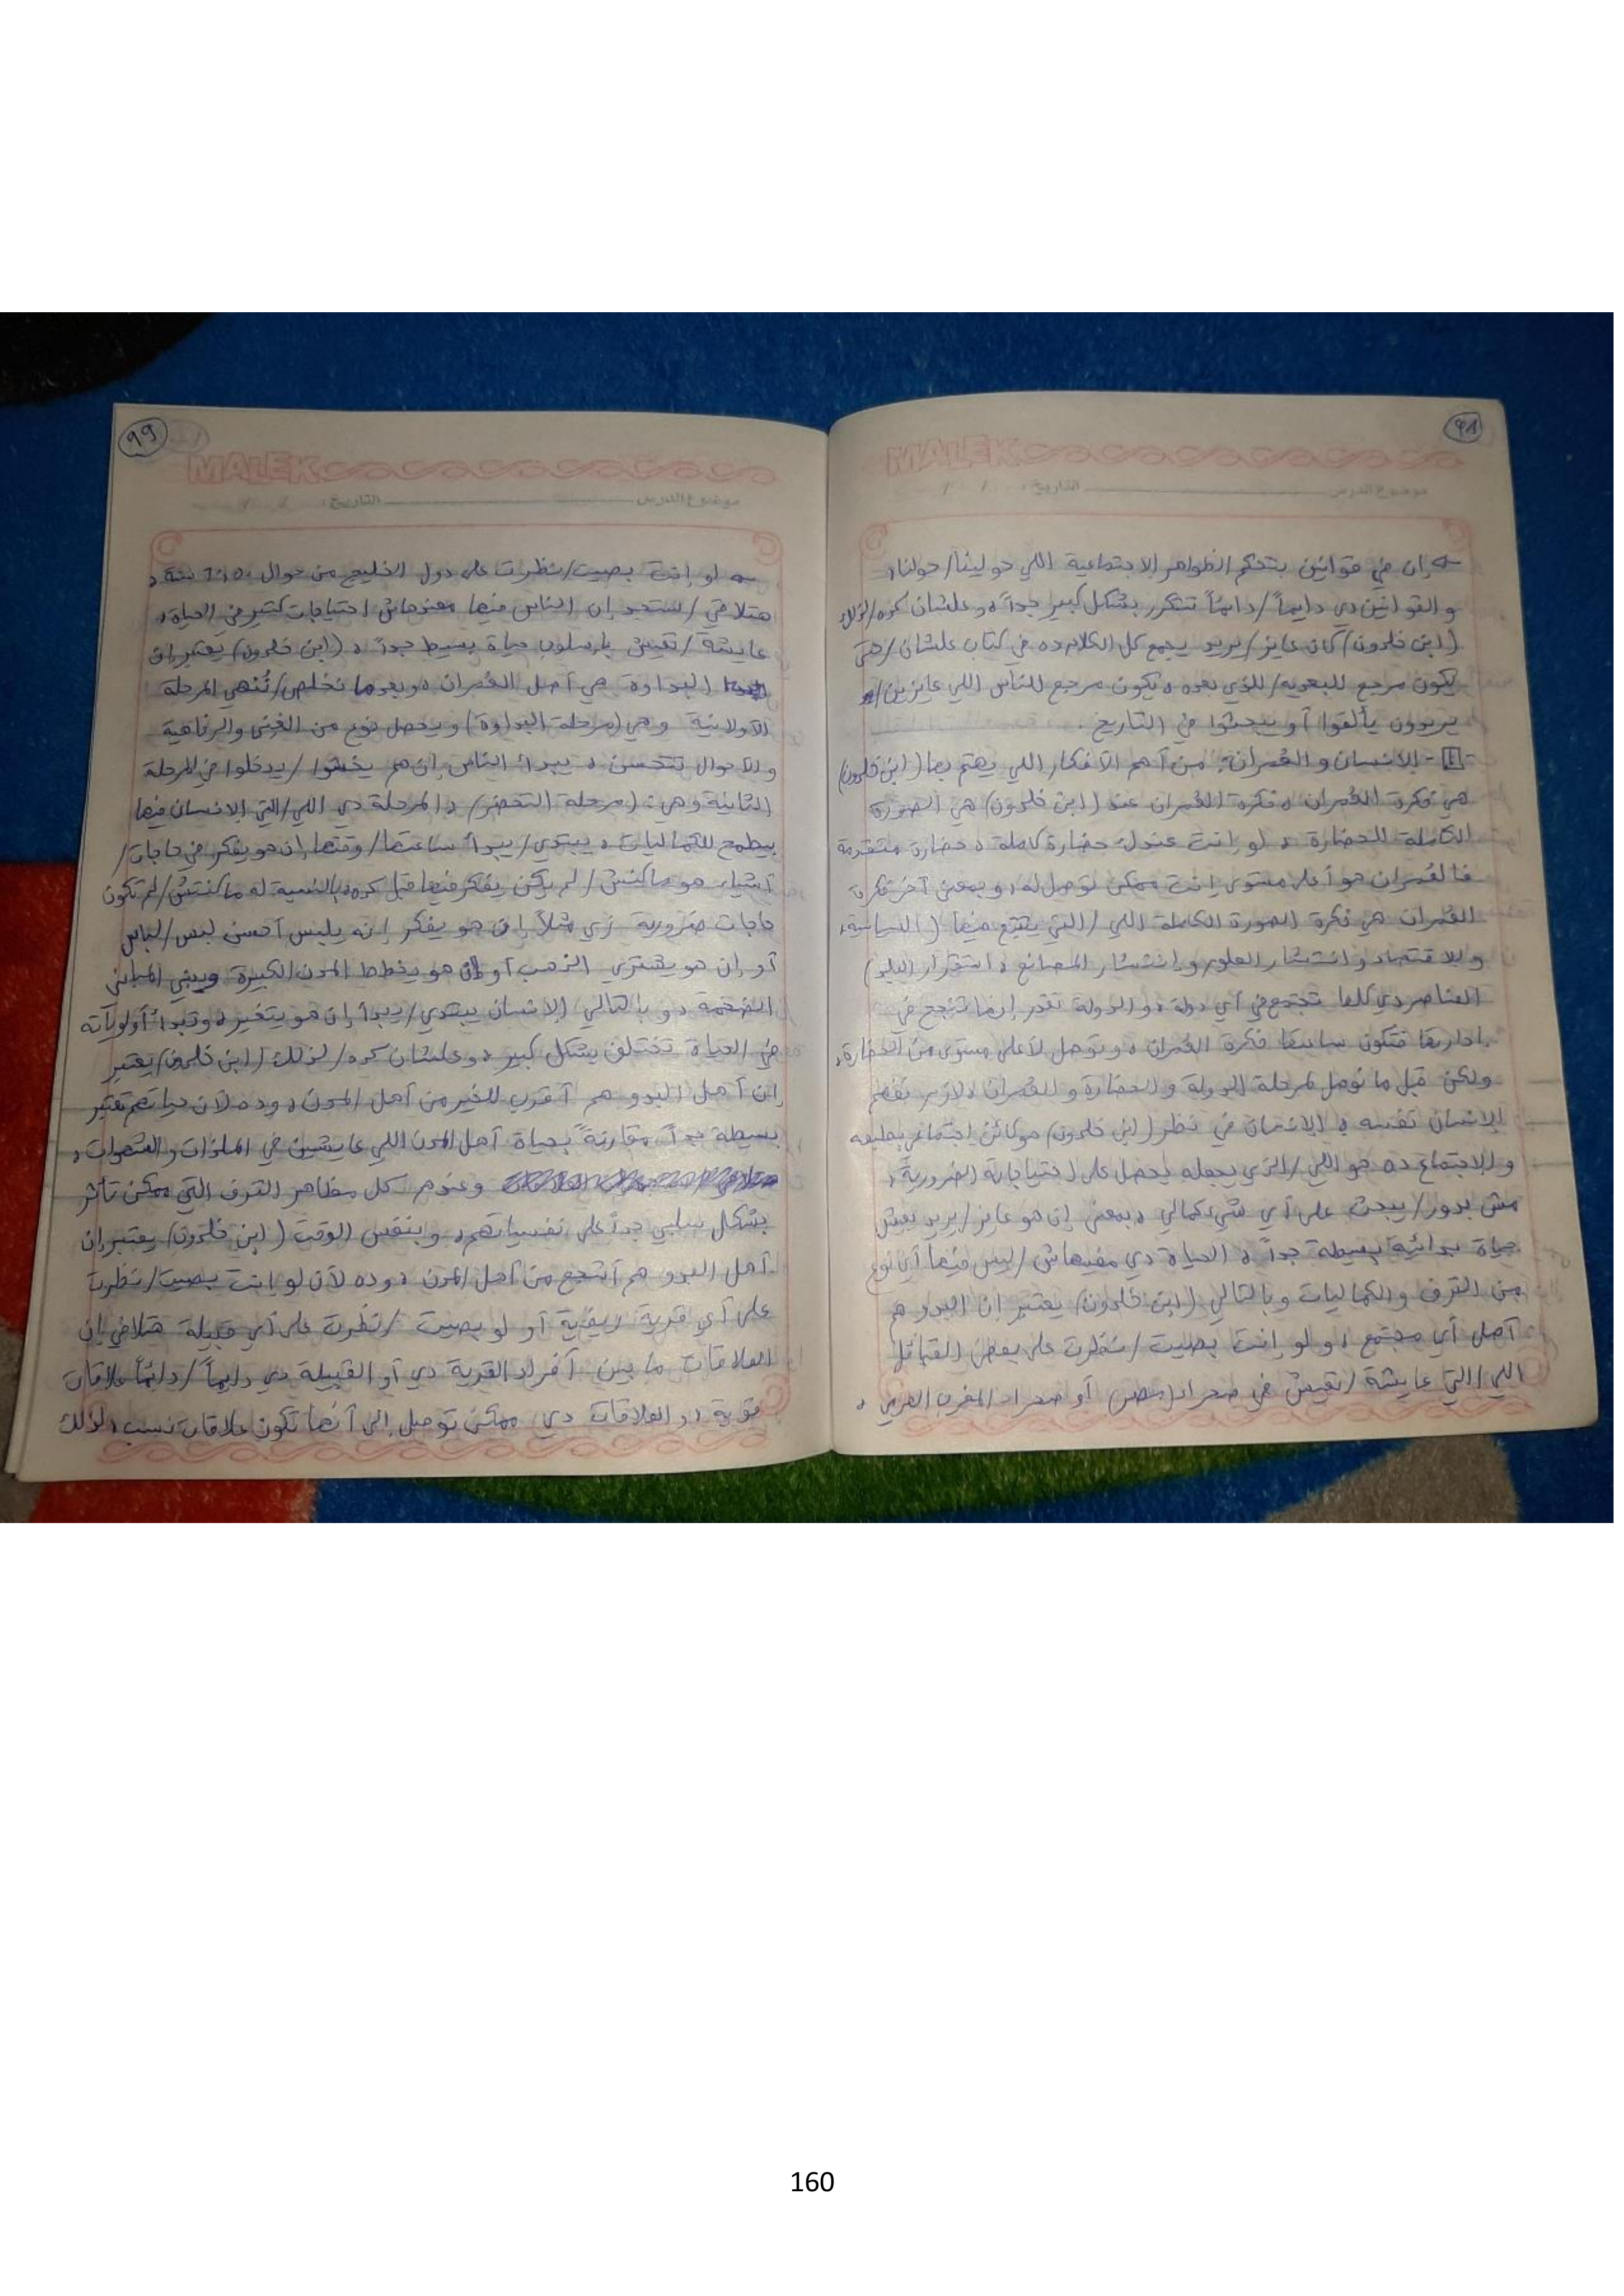 98
MALEK
موضوع الدرس التاريخ: / /
إن في قوانين بتحكم الظواهر الاجتماعية اللي حوالينا/حولنا،
والقوانين دي دايماً/دائماً تتكرر بشكل كبير جداً، وعلشان كده/لذلك
(ابن خلدون) كان عايز/يريد يجمع كل الكلام ده في كتاب علشان/حتى
يكون مرجع للبعديه/للذي بعده، يكون مرجع للناس اللي عايزين/
يريدون يألفوا أو يبحثوا في التاريخ.
- الإنسان والعُمران: من أهم الأفكار اللي يهتم بها (ابن خلدون)
هي فكرة العُمران، فكرة العُمران عند (ابن خلدون) هي الصورة
الكاملة للحضارة، لو إنت عندك حضارة كاملة، حضارة متقدمة
فالعُمران هو أعلى مستوى إنت ممكن توصل له، وبمعنى آخر فكرة
العُمران هي فكرة الصورة الكاملة اللي/التي يجتمع فيها (السياسة،
والاقتصاد وانتشار العلوم وانتشار المصانع، استقرار البلد)
العناصر دي كلها تجتمع في أي دولة، والدولة تقدر إنها تنجح في
إدارتها فتكون ساعتها فكرة العُمران، وتوصل لأعلى مستوى من الحضارة،
ولكن قبل ما نوصل لمرحلة الدولة والحضارة والعُمران، لازم نفهم
الإنسان نفسه، الإنسان في نظر (ابن خلدون) هو كائن اجتماعي بطبعه
والاجتماع ده هو اللي/الذي يجعله يحصل على احتياجاته الضرورية،
مش بدور/يبحث على أي شيء كمالي، بمعنى إن هو عايز/يريد يعيش
حياة بدائية بسيطة جداً، الحياة دي مفيهاش/ليس فيها أي نوع
من الترف والكماليات وبالتالي (ابن خلدون) يعتبر إن البدو هم
أصل أي مجتمع، ولو إنت بصيت/نظرت على بعض القبائل
اللي/التي عايشة/تعيش في صحراء (مصر) أو صحراء المغرب العربي،
99
MALEK
موضوع الدرس التاريخ: / /
لو إنت بصيت/نظرت على دول الخليج من حوالي سنة،
هتلاقي/ستجد إن الناس فيها معندهاش احتياجات كتير في الحياة،
عايشة/تعيش بأسلوب حياة بسيط جداً، (ابن خلدون) يعتبر إن
البداوة هي أصل العُمران، وبعدما نخلص/نُنهي المرحلة
الأولانية وهي (مرحلة البداوة) ويحصل نوع من الغنى والرفاهية
والأحوال تتحسن، يبدأ الناس إن هم يخشوا/يدخلوا في المرحلة
الثانية وهي: (مرحلة التحضر)، المرحلة دي اللي/التي الإنسان فيها
بيطمح للكماليات، يبتدي/يبدأ ساعتها/وقتها إن هو يفكر في حاجات/
أشياء هو ماكنش/لم يكن يفكر فيها قبل كده، بالنسبة له ماكنتش/لم تكون
حاجات ضرورية زي مثلاً إن هو يفكر إنه يلبس أحسن لبس/لباس
أو إن هو يشتري الذهب أو إن هو يخطط المدن الكبيرة ويبني المباني
الضخمة، وبالتالي الإنسان يبتدي/يبدأ إن هو يتغير، وتبدأ أولوياته
في الحياة تختلف بشكل كبير، وعلشان كده/لذلك (ابن خلدون) يعتبر
إن أهل البدو هم أقرب للخير من أهل المدن، وده لأن حياتهم تعتبر
بسيطة جداً، مقارنةً بحياة أهل المدن اللي عايشين في الملذات والشهوات،
وعندهم كل مظاهر الترف التي ممكن تأثر
بشكل سلبي جداً على نفسياتهم، وبنفس الوقت (ابن خلدون) يعتبر إن
أهل البدو هم أشجع من أهل المدن، وده لأن لو إنت بصيت/نظرت
على أي قرية ريفية أو لو بصيت/نظرت على أي قبيلة هتلاقي إن
العلاقات ما بين أفراد القرية دي أو القبيلة دي دايماً/دائماً علاقات
قوية، والعلاقات دي ممكن توصل إلى أنها تكون علاقات نسب، لذلك
160